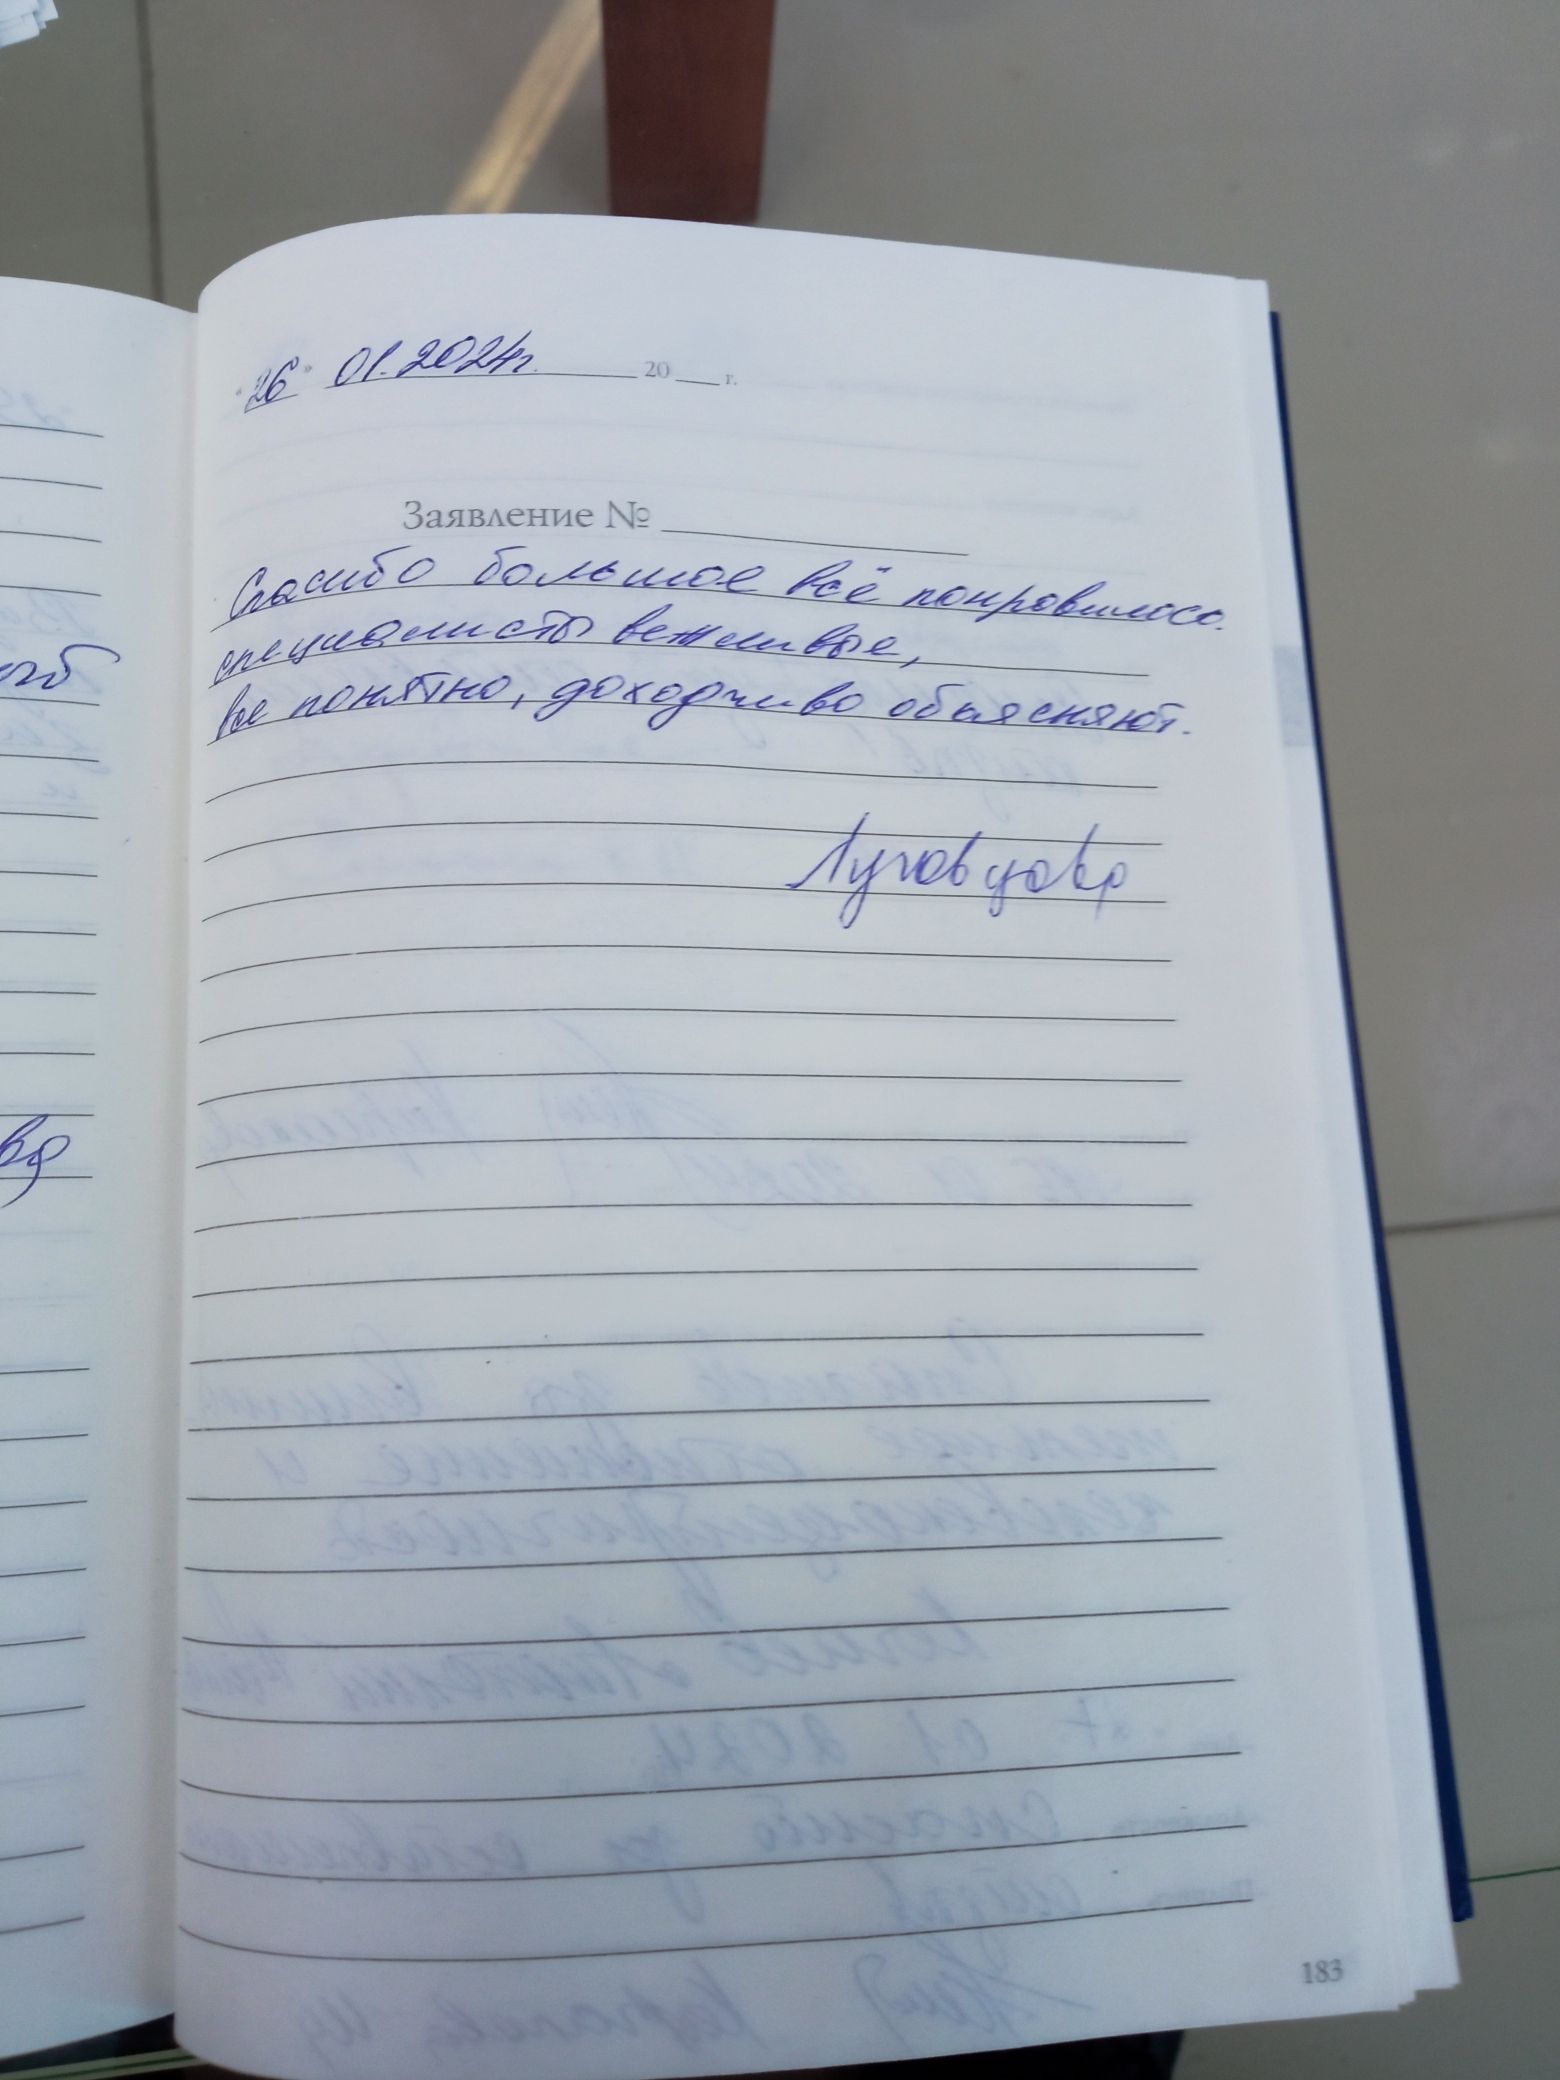 "26" 01.2024г. 20 г.
Заявление №
Спасибо большое всё понравилось.
специалисты вежливые,
все понятно, доходчиво объясняют.
Луговцова
183